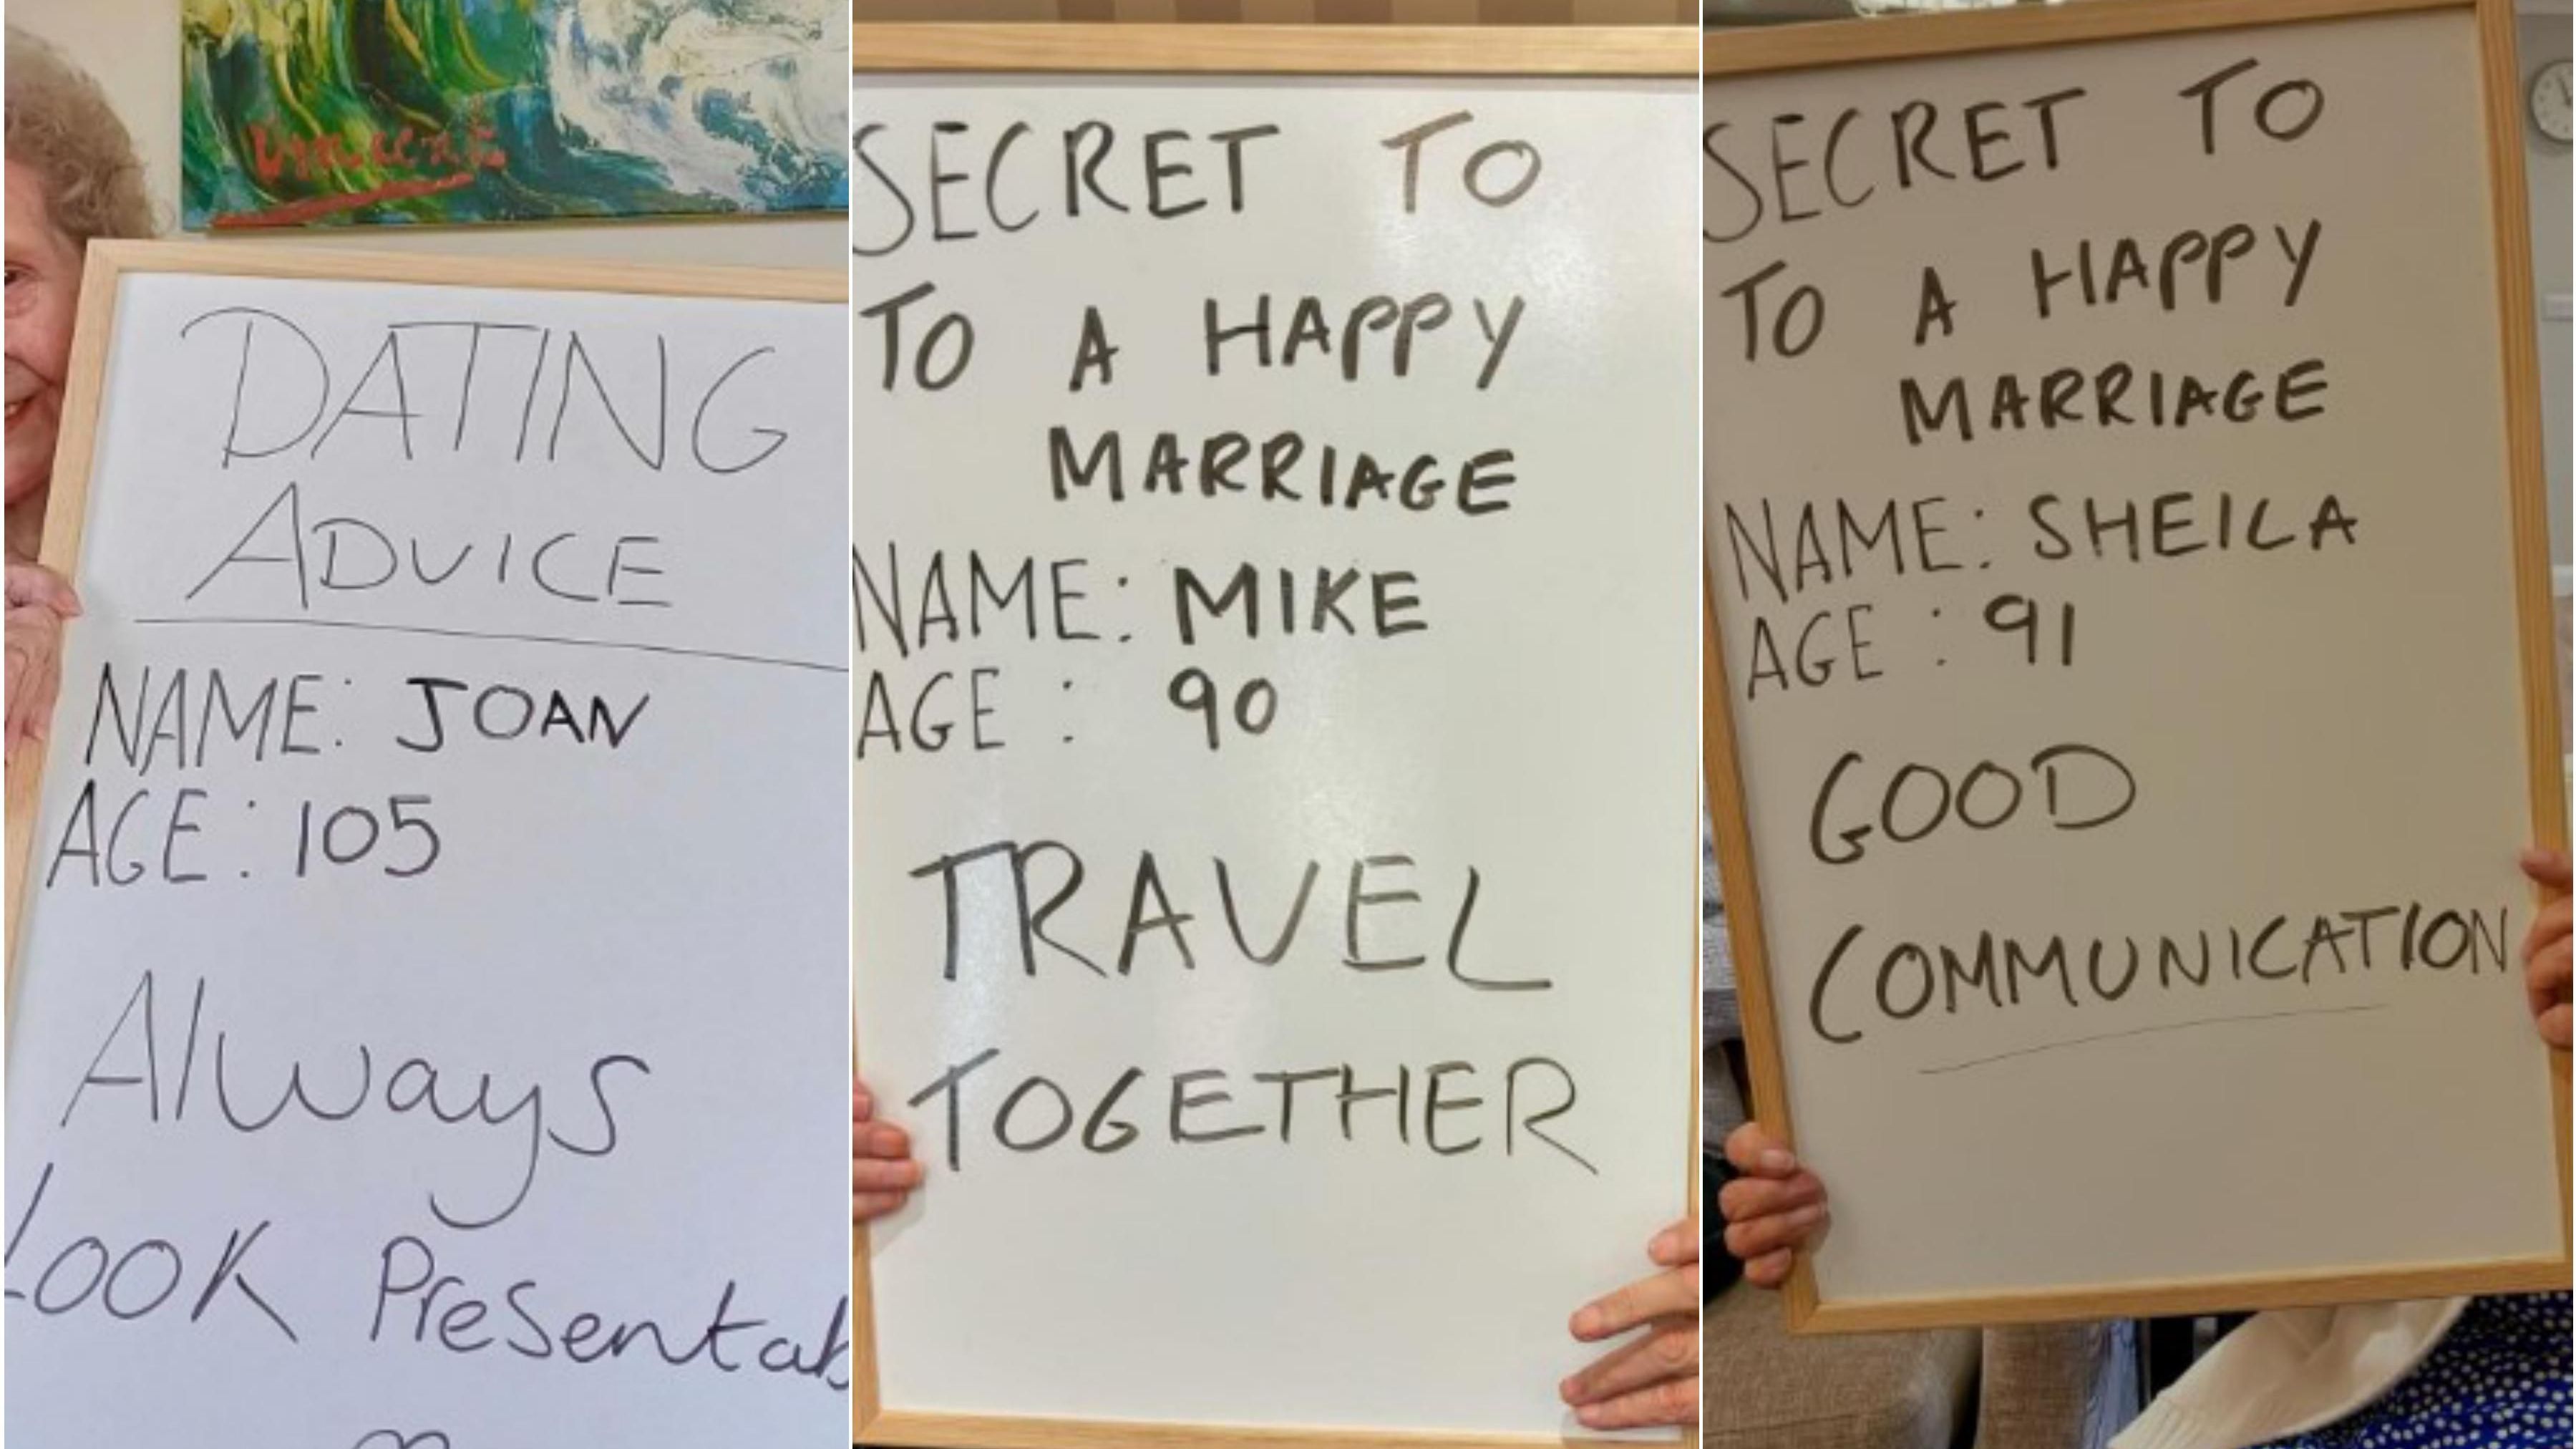 Vincent
DATING
ADVICE
NAME: JOAN
AGE: 105
Always
Look Presentab
SECRET TO
TO A HAPPY
MARRIAGE
NAME: MIKE
AGE : 90
TRAVEL
TOGETHER
SECRET TO
TO A HAPPY
MARRIAGE
NAME: SHEILA
AGE : 91
GOOD
COMMUNICATION